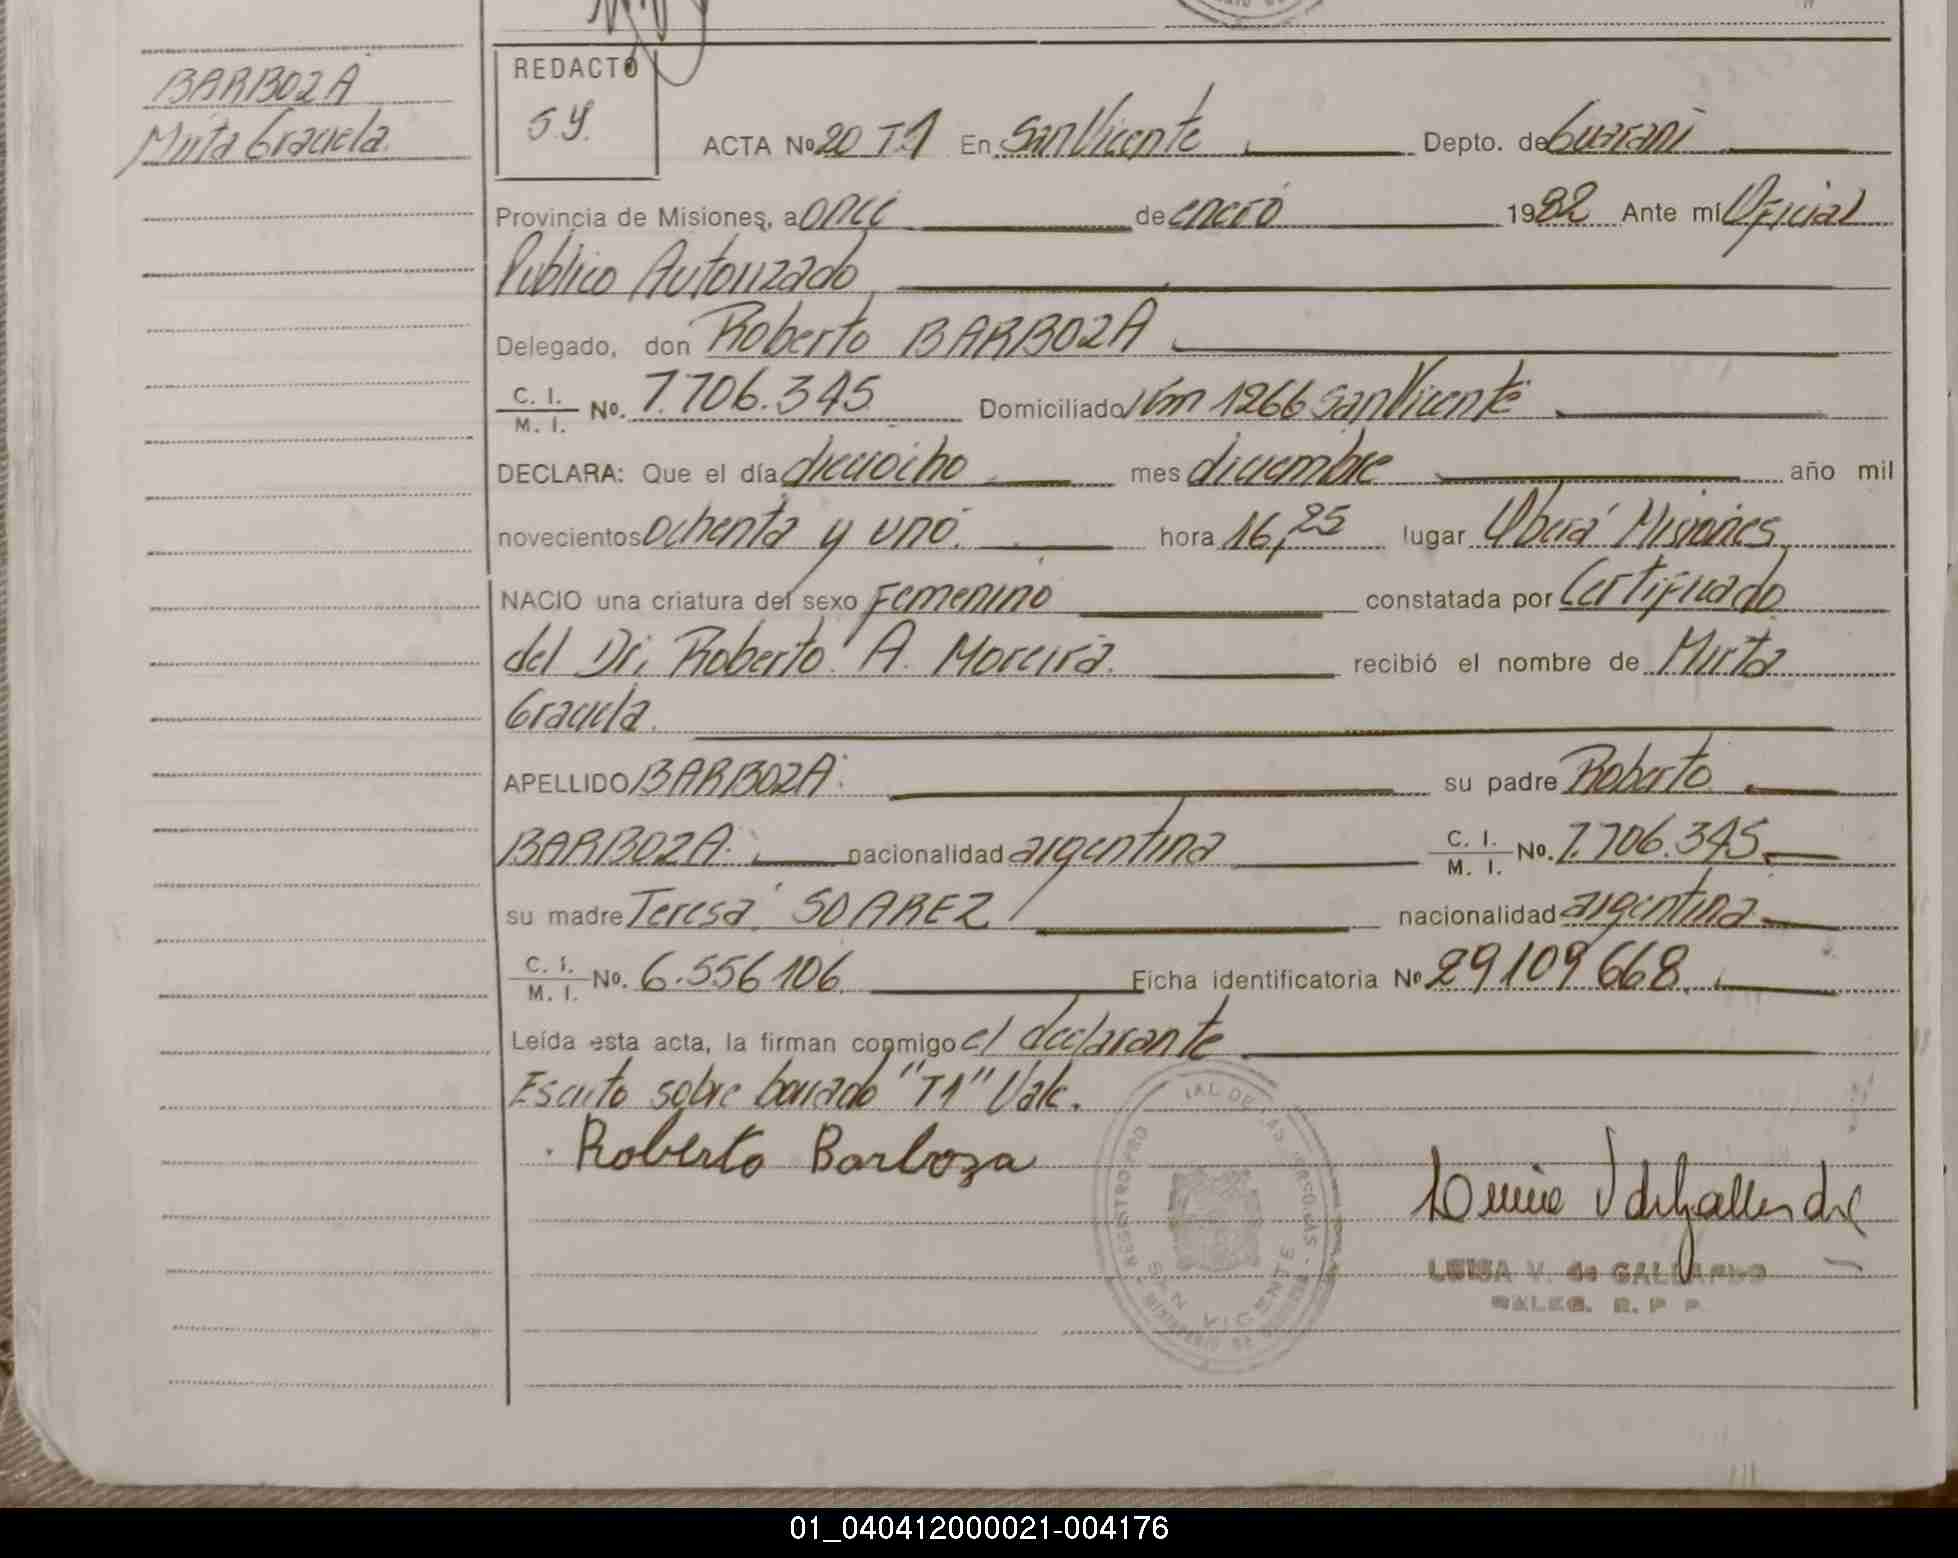 BARBOZA
Mirta Graciela.
REDACTO
S.Y.
ACTA Nº 20 T.1 En San Vicente Depto. de Guaraní
Provincia de Misiones, a once de enero 1982 Ante mí Oficial
Público Autorizado
Delegado, don Roberto BARBOZA
C. I. / M. I. No. 7.706.345 Domiciliado Km 1266 San Vicente
DECLARA: Que el día dieciocho mes diciembre año mil
novecientos ochenta y uno. hora 16,25 lugar Oberá Misiones
NACIO una criatura del sexo Femenino constatada por Certificado
del Dr. Roberto A. Moreira. recibió el nombre de Mirta
Graciela.
APELLIDO BARBOZA. su padre Roberto
BARBOZA. nacionalidad argentina C. I. / M. I. No. 7.706.345
su madre Teresa SOAREZ nacionalidad argentina
C. I. / M. I. No. 6.556.106 Ficha identificatoria Nº 29109668
Leída esta acta, la firman conmigo el declarante
Escrito sobre borrado "T1" Vale.
Roberto Barboza
REGISTRO PRO IAL DE LAS PERSONAS
SAN VICENTE
LUISA V. de GALLARDO
DELEG. R. P. P.
01_040412000021-004176